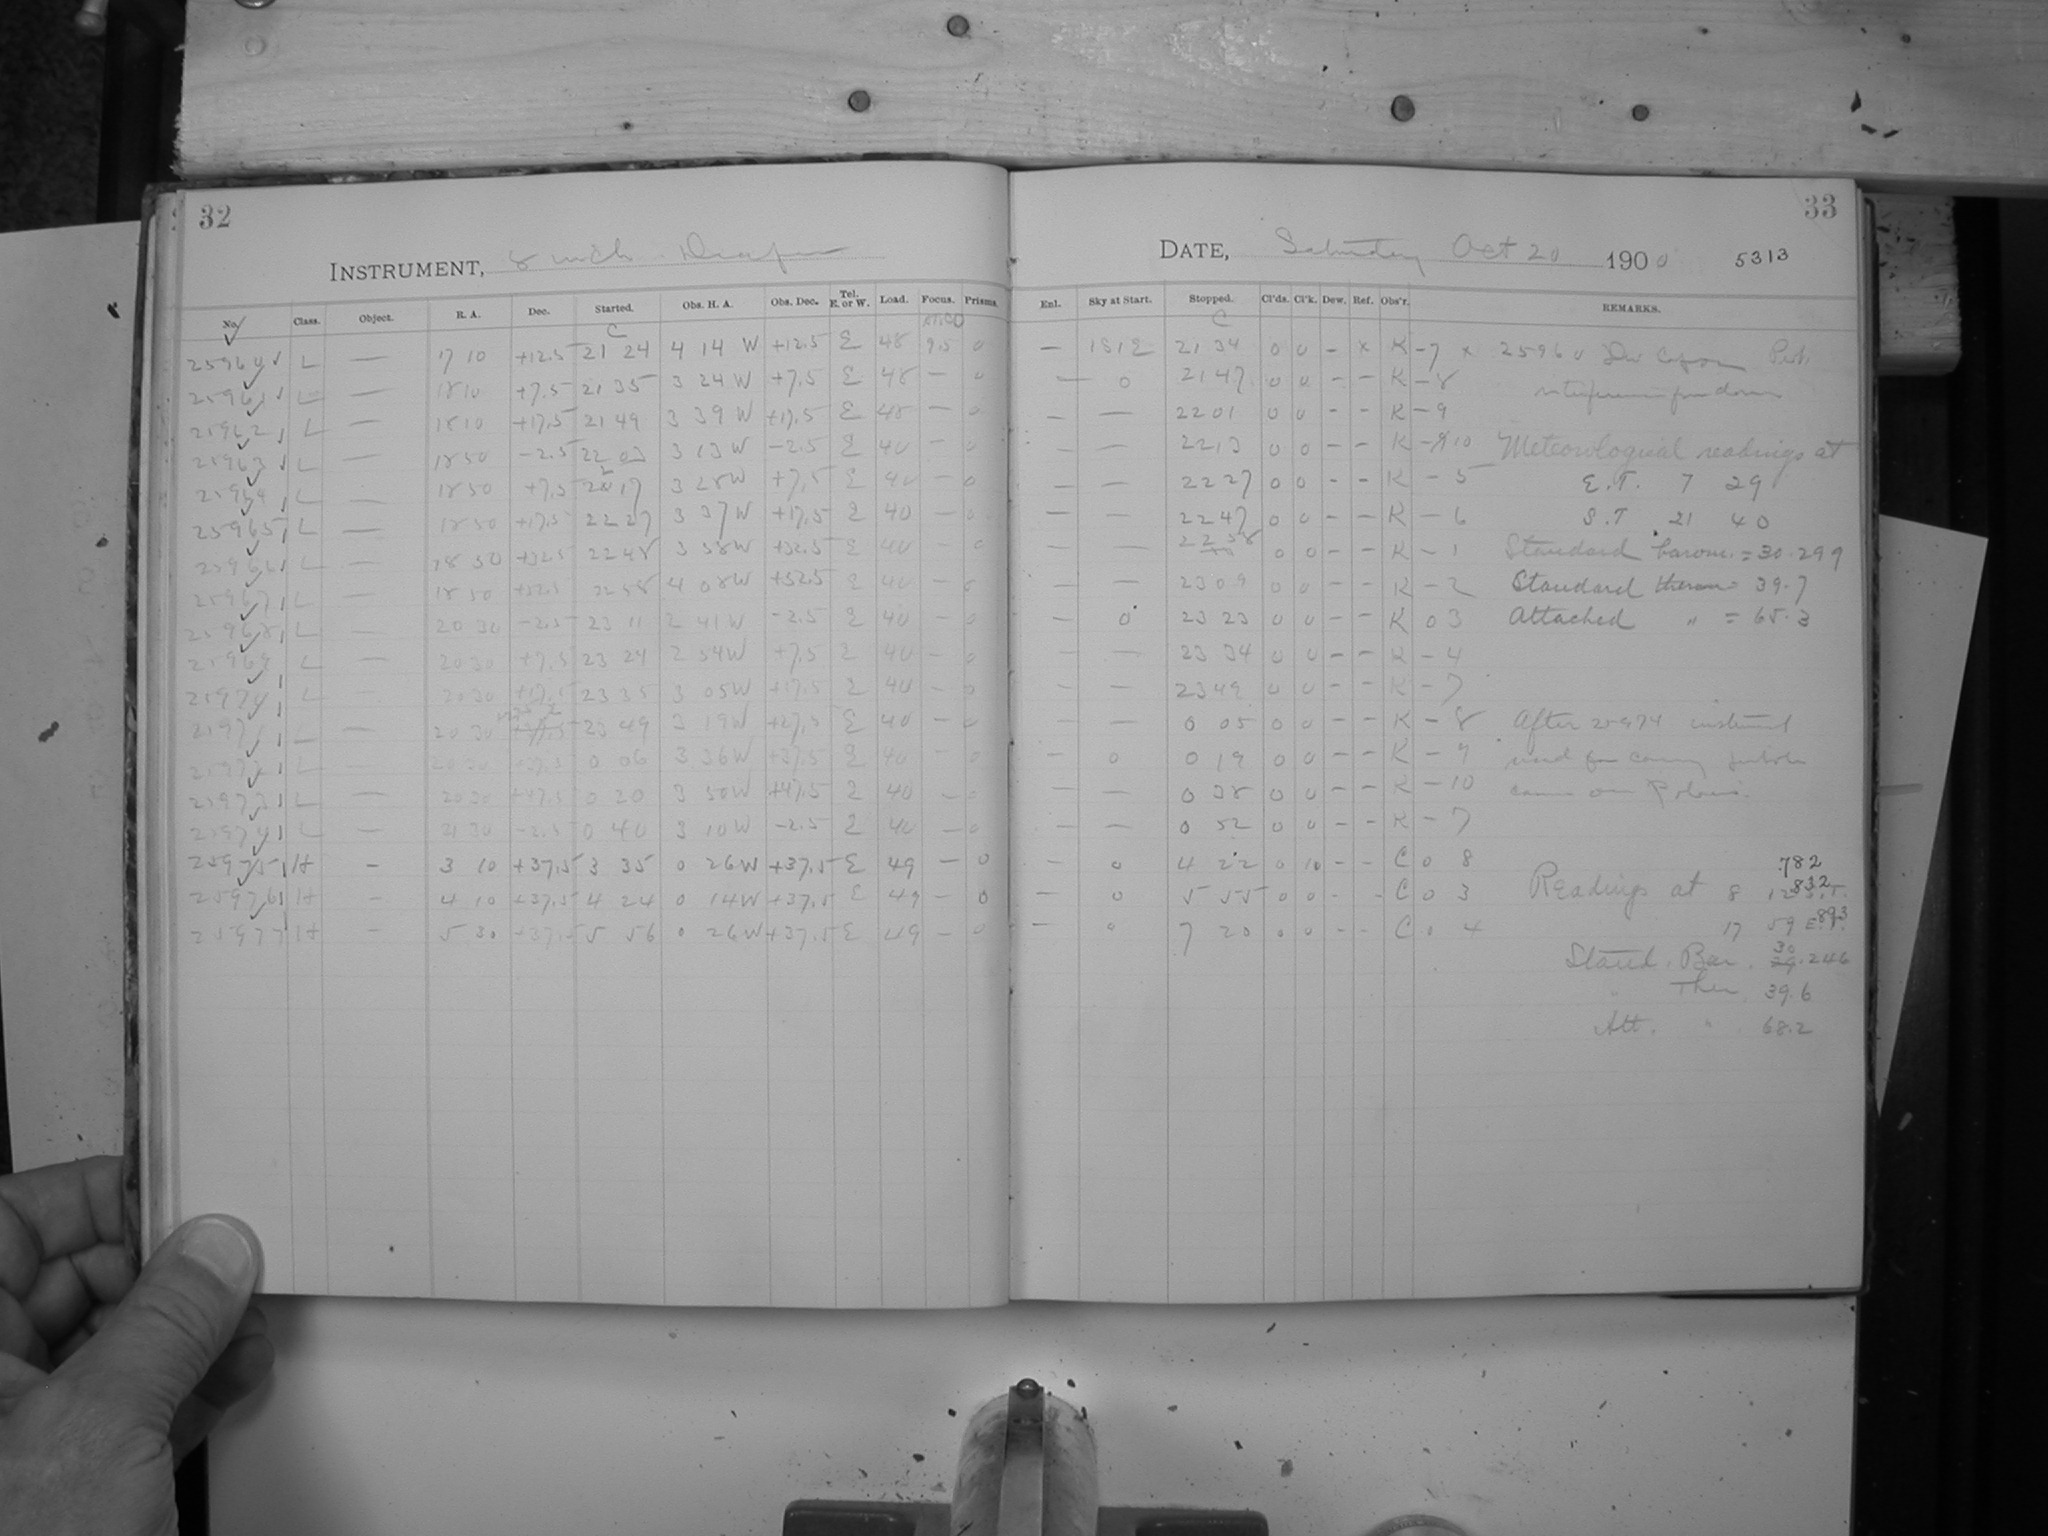 32
INSTRUMENT, 8 inch Draper
No. Class. Object. R. A. Dec. Started. Obs. H. A. Obs. Dec. Tel. E. or W. Load. Focus. Prisms.
C
25960 L — 17 10 +12.5 21 24 4 14 W +12.5 E 48 9.5 0
25961 L — 18 10 +7.5 21 35 3 24 W +7.5 E 48 — 0
25962 L — 18 10 +17.5 21 49 3 39 W +17.5 E 48 — 0
25963 L — 18 50 -2.5 22 03 3 13 W -2.5 E 40 — 0
25964 L — 18 50 +7.5 22 17 3 28 W +7.5 E 40 — 0
25965 L — 18 50 +17.5 22 27 3 37 W +17.5 E 40 — 0
25966 L — 18 50 +32.5 22 48 3 58 W +32.5 E 40 — 0
25967 L — 18 50 22 58 4 08 W +52.5 E 40 — 0
25968 L — 20 30 -2.5 23 11 2 41 W -2.5 E 40 — 0
25969 L — 20 30 +7.5 23 24 2 54 W +7.5 E 40 — 0
25970 L — 20 30 +17.5 23 35 3 05 W +17.5 E 40 — 0
25971 L — 20 30 23 49 3 19 W +27.5 E 40 — 0
25972 L — 20 30 +37.5 0 06 3 36 W +37.5 E 40 — 0
25973 L — 20 30 +47.5 0 20 3 50 W +47.5 E 40 — 0
25974 L — 21 30 -2.5 0 40 3 10 W -2.5 E 40 — 0
25975 H — 3 10 +37.5 3 35 0 26 W +37.5 E 49 — 0
25976 H — 4 10 +37.5 4 24 0 14 W +37.5 E 49 — 0
25977 H — 5 30 +37.5 5 56 0 26 W +37.5 E 49 — 0
33
DATE, Saturday Oct 20 1900 5313
Enl. Sky at Start. Stopped. Cl'ds. Cl'k. Dew. Ref. Obs'r. REMARKS.
C
— 21 34 0 0 - x K -7 x 25960
— 0 21 47 0 0 - - K -8
— — 22 01 0 0 - - K -9
— — 22 13 0 0 - - K -10 Meteorological readings at
— — 22 27 0 0 - - K -5 E.T. 7 29
— — 22 47 0 0 - - K -6 S.T 21 40
— — 22 58 0 0 - - K -1 Standard barom. = 30.299
— — 23 09 0 0 - - K -2 Standard therm = 39.7
— 0 23 23 0 0 - - K 0 3 Attached " = 65.3
— — 23 34 0 0 - - K -4
— — 23 49 0 0 - - K -7
— — 0 05 0 0 - - K -8 After 25974 instrument
— 0 0 19 0 0 - - K -9 used for
— — 0 38 0 0 - - K -10 on Polaris.
— — 0 52 0 0 - - K -7
— 0 4 22 0 10 - - C 0 8 .782
— 0 5 55 0 0 - - C 0 3 Readings at 8 12 S.T. 832
— 0 7 20 0 0 - - C 0 4 17 59 E.T. 893
Stand. Bar. 30.246
" Ther 39.6
Att. " 68.2